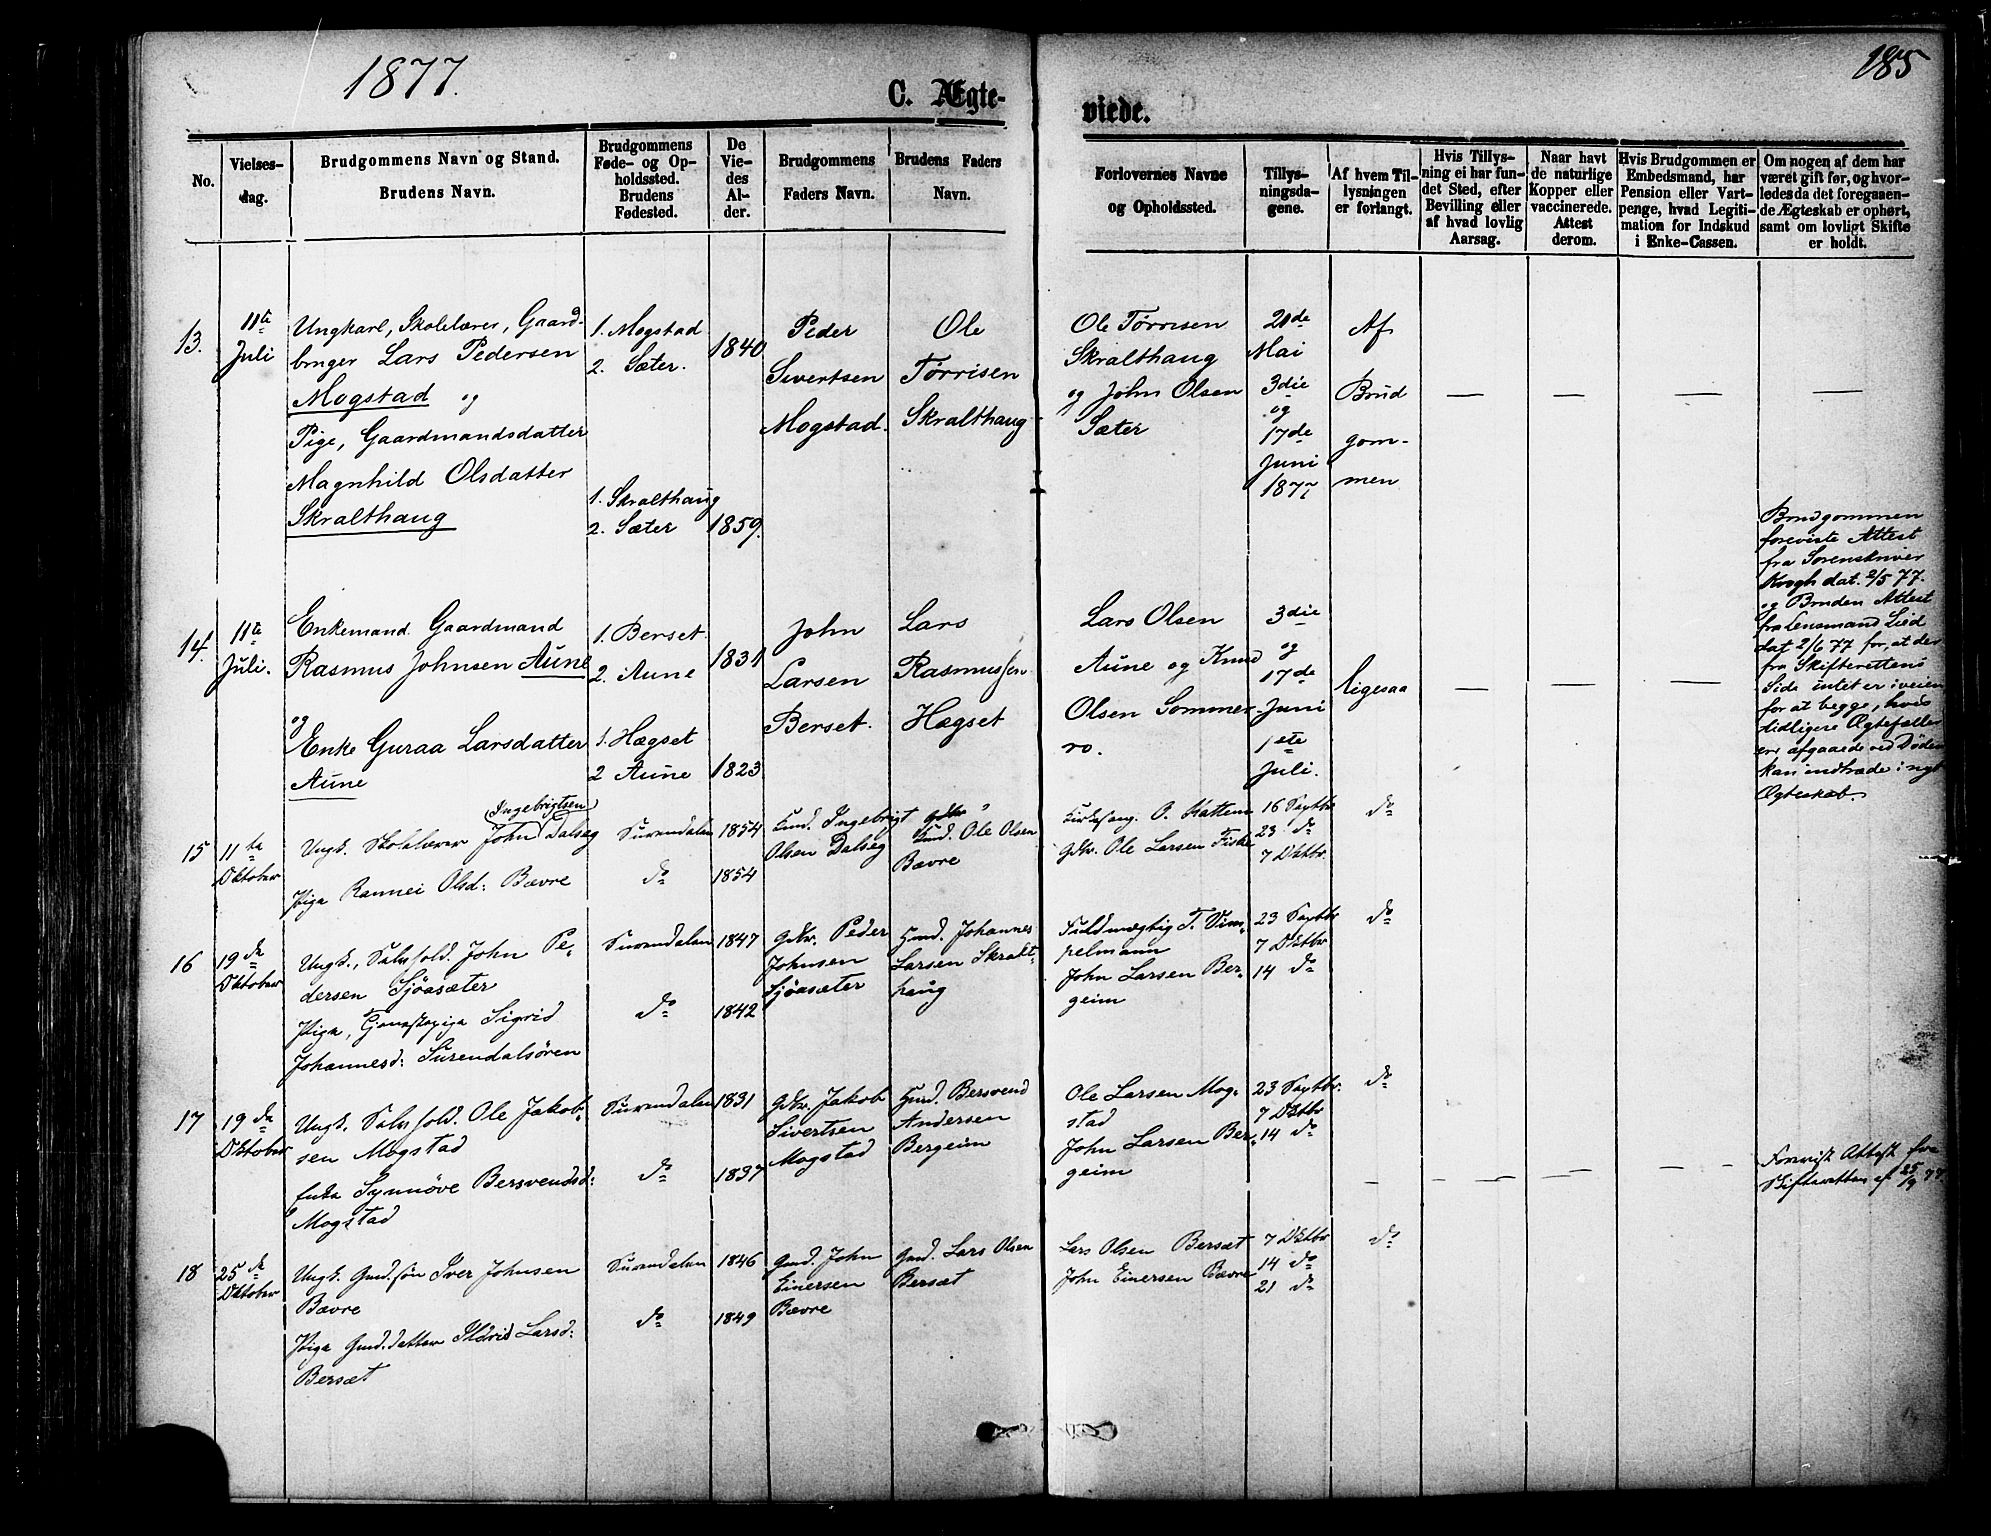 1877.
185
C. Ægte-
viede.
No.
Vielses-
dag.
Brudgommens Navn og Stand.
Brudens Navn.
Brudgommens
Føde- og Op-
holdssted.
Brudens
Fødested.
De
Vie-
des
Al-
der.
Brudgommens
Faders Navn.
Brudens Faders
Navn.
Forlovernes Navne
og Opholdssted.
Tillys-
ningsda-
gene.
Af hvem Til-
lysningen
er forlangt.
Hvis Tillys-
ning ei har fun-
det Sted, efter
Bevilling eller
af hvad lovlig
Aarsag.
Naar havt
de naturlige
Kopper eller
vaccinerede.
Attest
derom.
Hvis Brudgommen er
Embedsmand, har
Pension eller Vart-
penge, hvad Legiti-
mation for Indskud
i Enke-Cassen.
Om nogen af dem har
været gift før, og hvor-
ledes da det foregaaen-
de Ægteskab er ophørt,
samt om lovligt Skifte
er holdt.
13.
11te
Juli
Ungkarl, Skolelærer, Gaard-
bruger Lars Pedersen
Mogstad og
Pige, Gaardmandsdatter
Magnhild Olsdatter
Skralthaug
1. Mogstad
2. Sæter.
1. Skralthaug
2. Sæter
1840
1859.
Peder
Sivertsen
Mogstad.
Ole
Tørrisen
Skralthaug
Ole Tørrisen
Skralthaug
og John Olsen
Sæter
21de
Mai
3die
og
17de
Juni
1877
Af
Brud
gom-
men
14.
11te
Juli.
Enkemand Gaardmand
Rasmus Johnsen Aune
og
Enke Guraa Larsdatter
Aune
1. Berset
2. Aune
1. Hægset
2 Aune
1831
1823
John
Larsen
Berset.
Lars
Rasmussen
Hægset
Lars Olsen
Aune og Knud
Olsen Sommer
ro.
3die
og
17de
Juni
1ste
Juli.
ligesaa
Brudgommen
foreviste Attest
fra Sorenskriver
Krogh dat. 2/5 77.
og Bruden Attest
fra Lensmand Lied
dat 2/6 77 for, at der
fra Skifterettens
Side intet er i veien
for at begge, hvis
tidligere Ægtefæller
ere afgaaede ved Døden
kan indtræde i nyt
Ægteskab.
15
11te
Oktober
Ungk. Skolelærer John Ingebrigtsen Dalseg
Pige Rannei Olsd: Bævre
Surendalen
do
1854
1854
Ingebrigt
Olsen Dalseg
Gbr.
Ole Olsen
Bævre
Kirkesang. O. Kattem
Gbr. Ole Larsen Fiske
16 Septbr
23 do
7 Oktbr.
do
16
19de
Oktober
Ungk., John Pe-
dersen Sjöasæter
Pige, Sigrid
Johannesd: Surendalsören
Surendalen
do
1847
1842
Gbr. Peder
Johnsen
Sjöasæter
Johannes
Larsen Skralt-
haug
Fuldmægtig T. Vim-
pelmann
John Larsen Ber-
geim
23 Septbr
7 Oktbr
14 do
do
17
19de
Oktober
Ungk. Ole Jakob-
sen Mogstad
Enke Synnöve Bersvendsd:
Mogstad
Surendalen
do
1831
1837
Gbr. Jakob
Sivertsen
Mogstad
Bersvend
Andersen
Bergeim
Ole Larsen Mog-
stad
John Larsen Ber-
geim
23 Septbr.
7 Oktbr
14 do
do
Forevist Attest fra
Skifteretten af 25/9 77
18
25de
Oktober
Ungk. Gmd.sön Iver Johnsen
Bævre
Pige Gmd.datter Ildrid Larsd:
Bersæt
Surendalen
do
1846
1849
Gmd. John
Einersen
Bævre
Gmd. Lars Olsen
Bersæt
Lars Olsen Bersæt
John Einersen Bævre
7 Oktbr
14 do
21 do
do